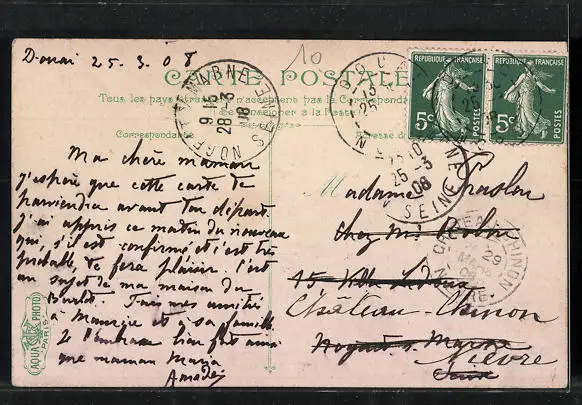 Douai 25.3.08
10
CARTE POSTALE
Tous les pays étrangers n'acceptent pas la Correspondance
Se renseigner à la Poste
Correspondance
Adresse
NOGENT S MARNE SEINE
9 15
28 -3
08
RÉPUBLIQUE FRANÇAISE
5c
POSTES
RÉPUBLIQUE FRANÇAISE
5c
POSTES
25 -3
08
SEINE
CHATEAU CHINON
29
MARS
08
NIEVRE
Ma chère maman
j'espère que cette carte te
parviendra avant ton départ.
J'ai appris ce matin du nouveau
qui, s'il est confirmé et c'est très
probable, te fera plaisir. C'est
au sujet de ma maison du
Mes amitiés
à Maurice et à sa famille
Je t'embrasse bien fort ainsi
que maman Maria
Amadei
Madame
chez Mr
15 Villa
Château-Chinon
Nogent s. Marne
Nièvre
Seine
AQUA PHOTO
PARIS